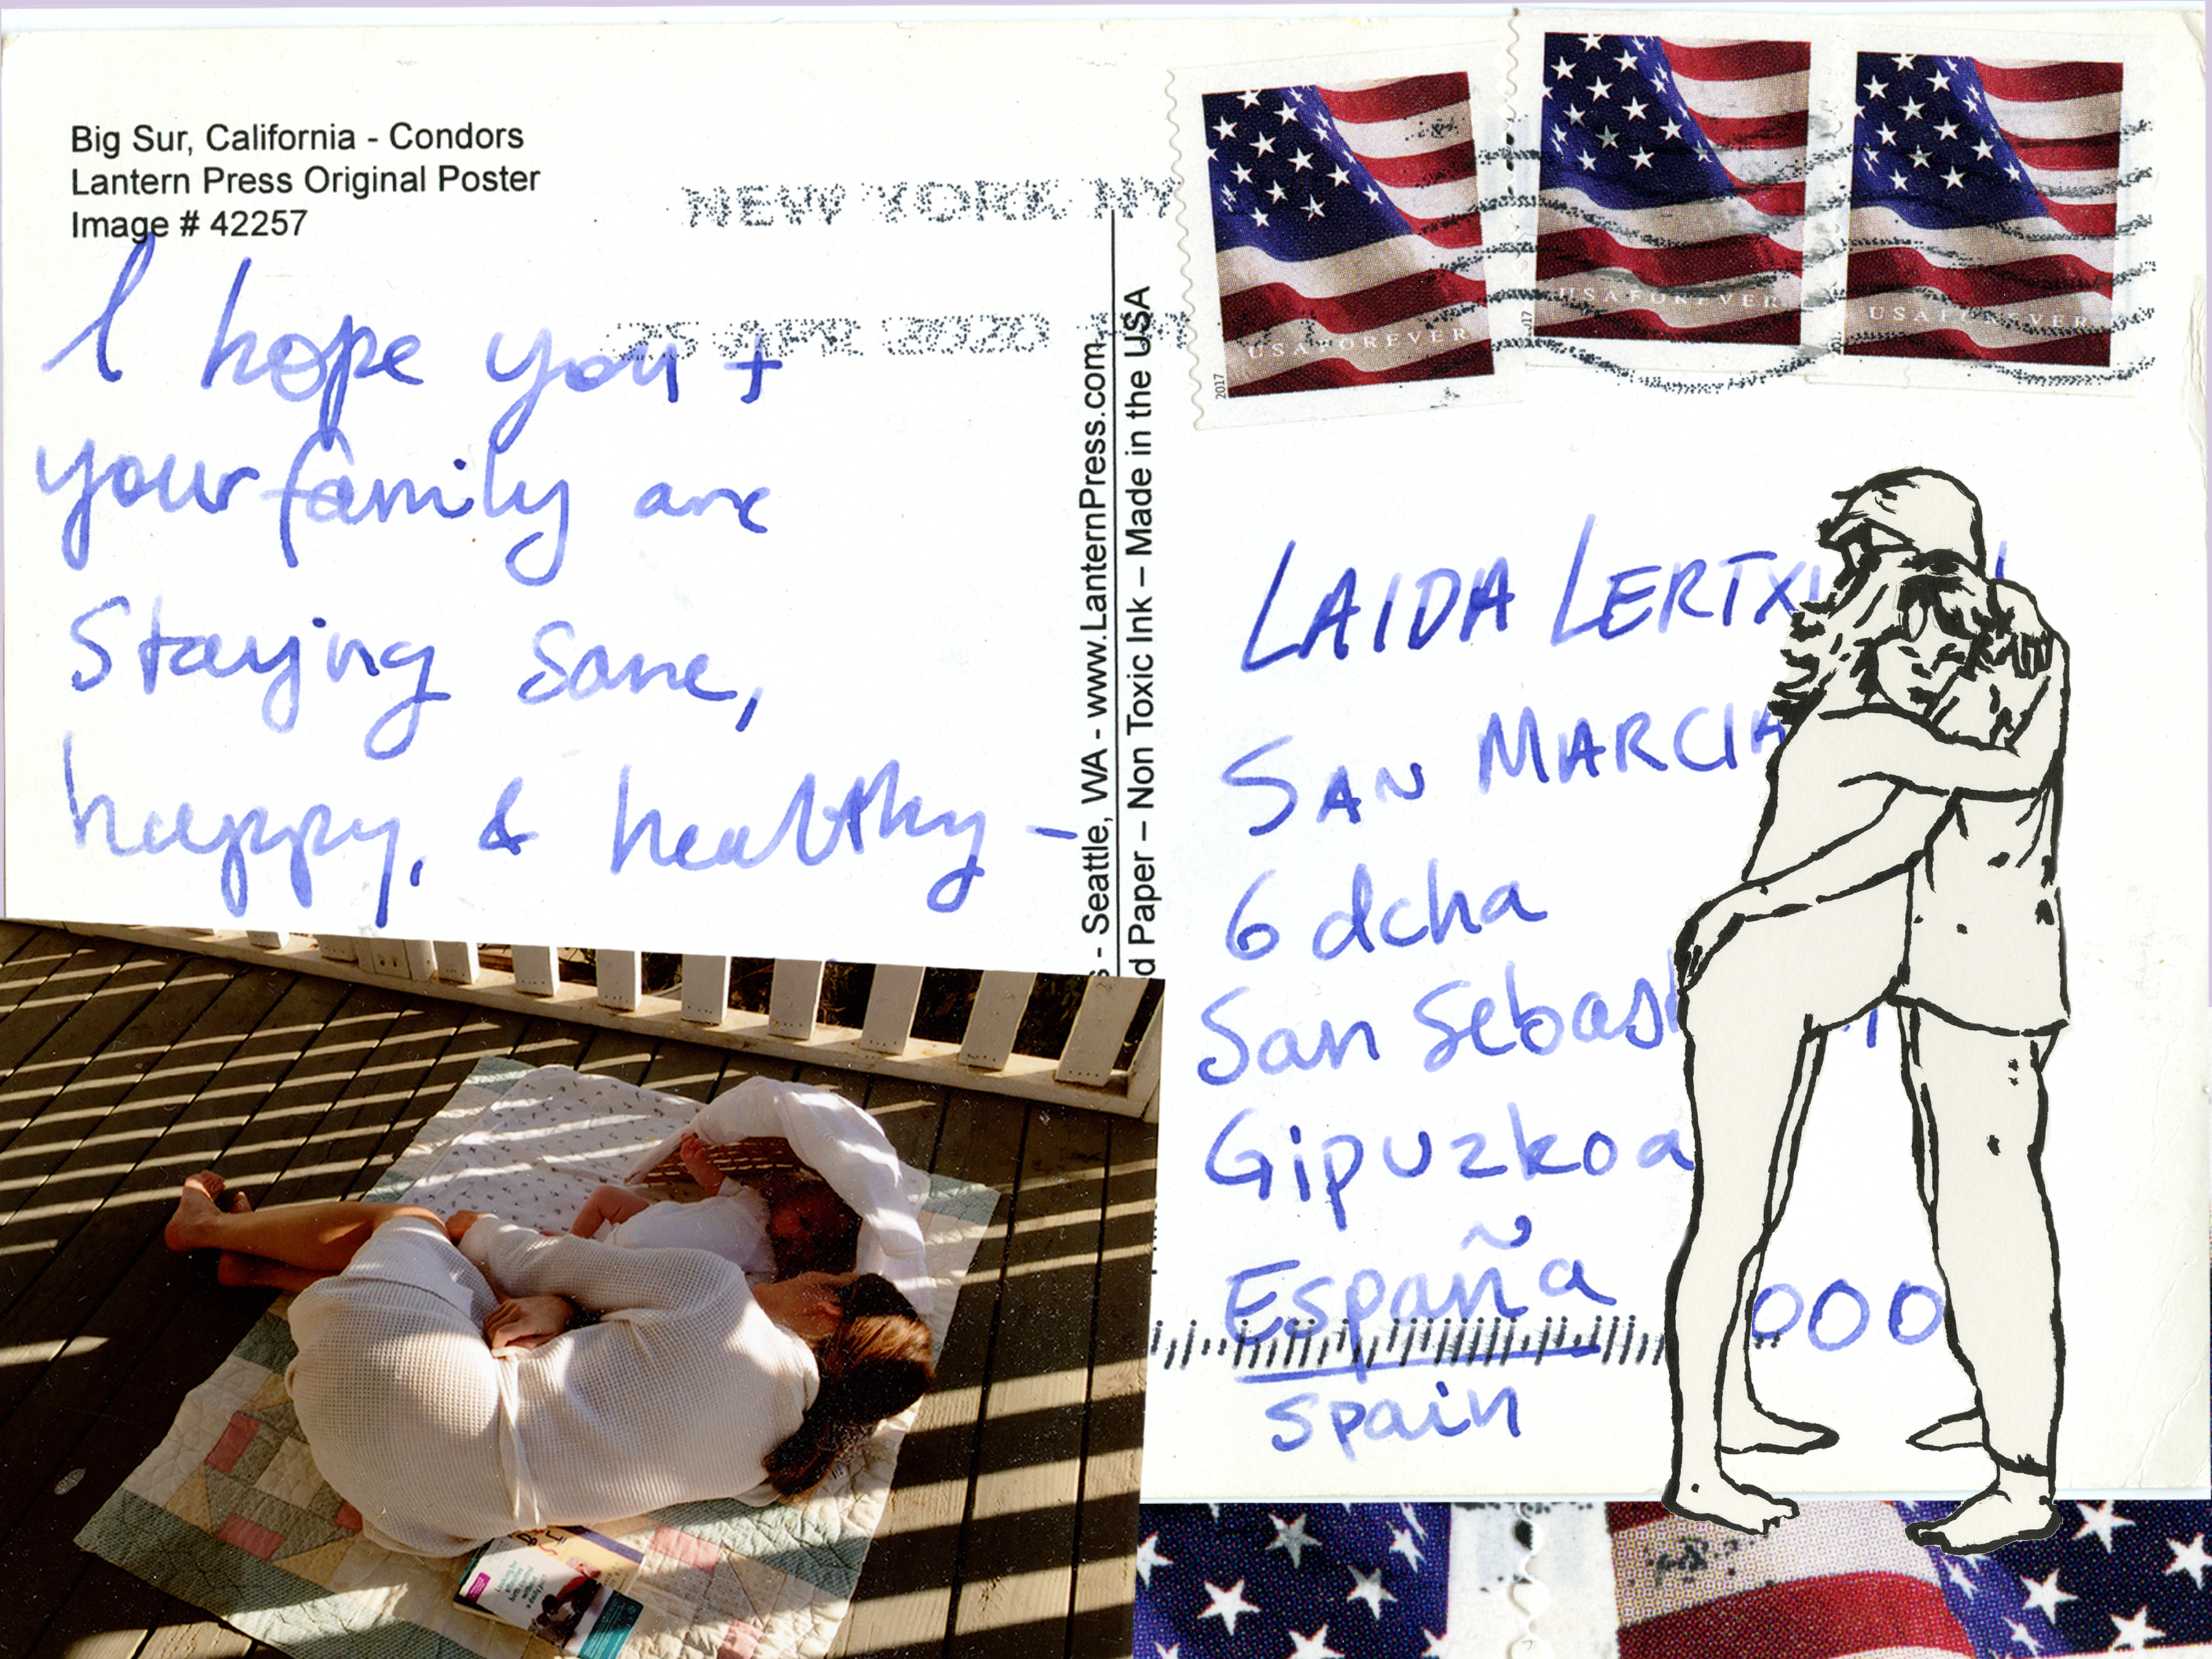 Big Sur, California - Condors
Lantern Press Original Poster
Image # 42257
NEW YORK NY
25 APR 2020
I hope you +
your family are
Staying sane,
happy, & healthy -
- Seattle, WA - www.LanternPress.com
Paper – Non Toxic Ink – Made in the USA
USA FOREVER
2017
USA FOREVER
2017
USA FOREVER
LAIDA
SAN
6 dcha
San
Gipuzkoa
España
000
Spain